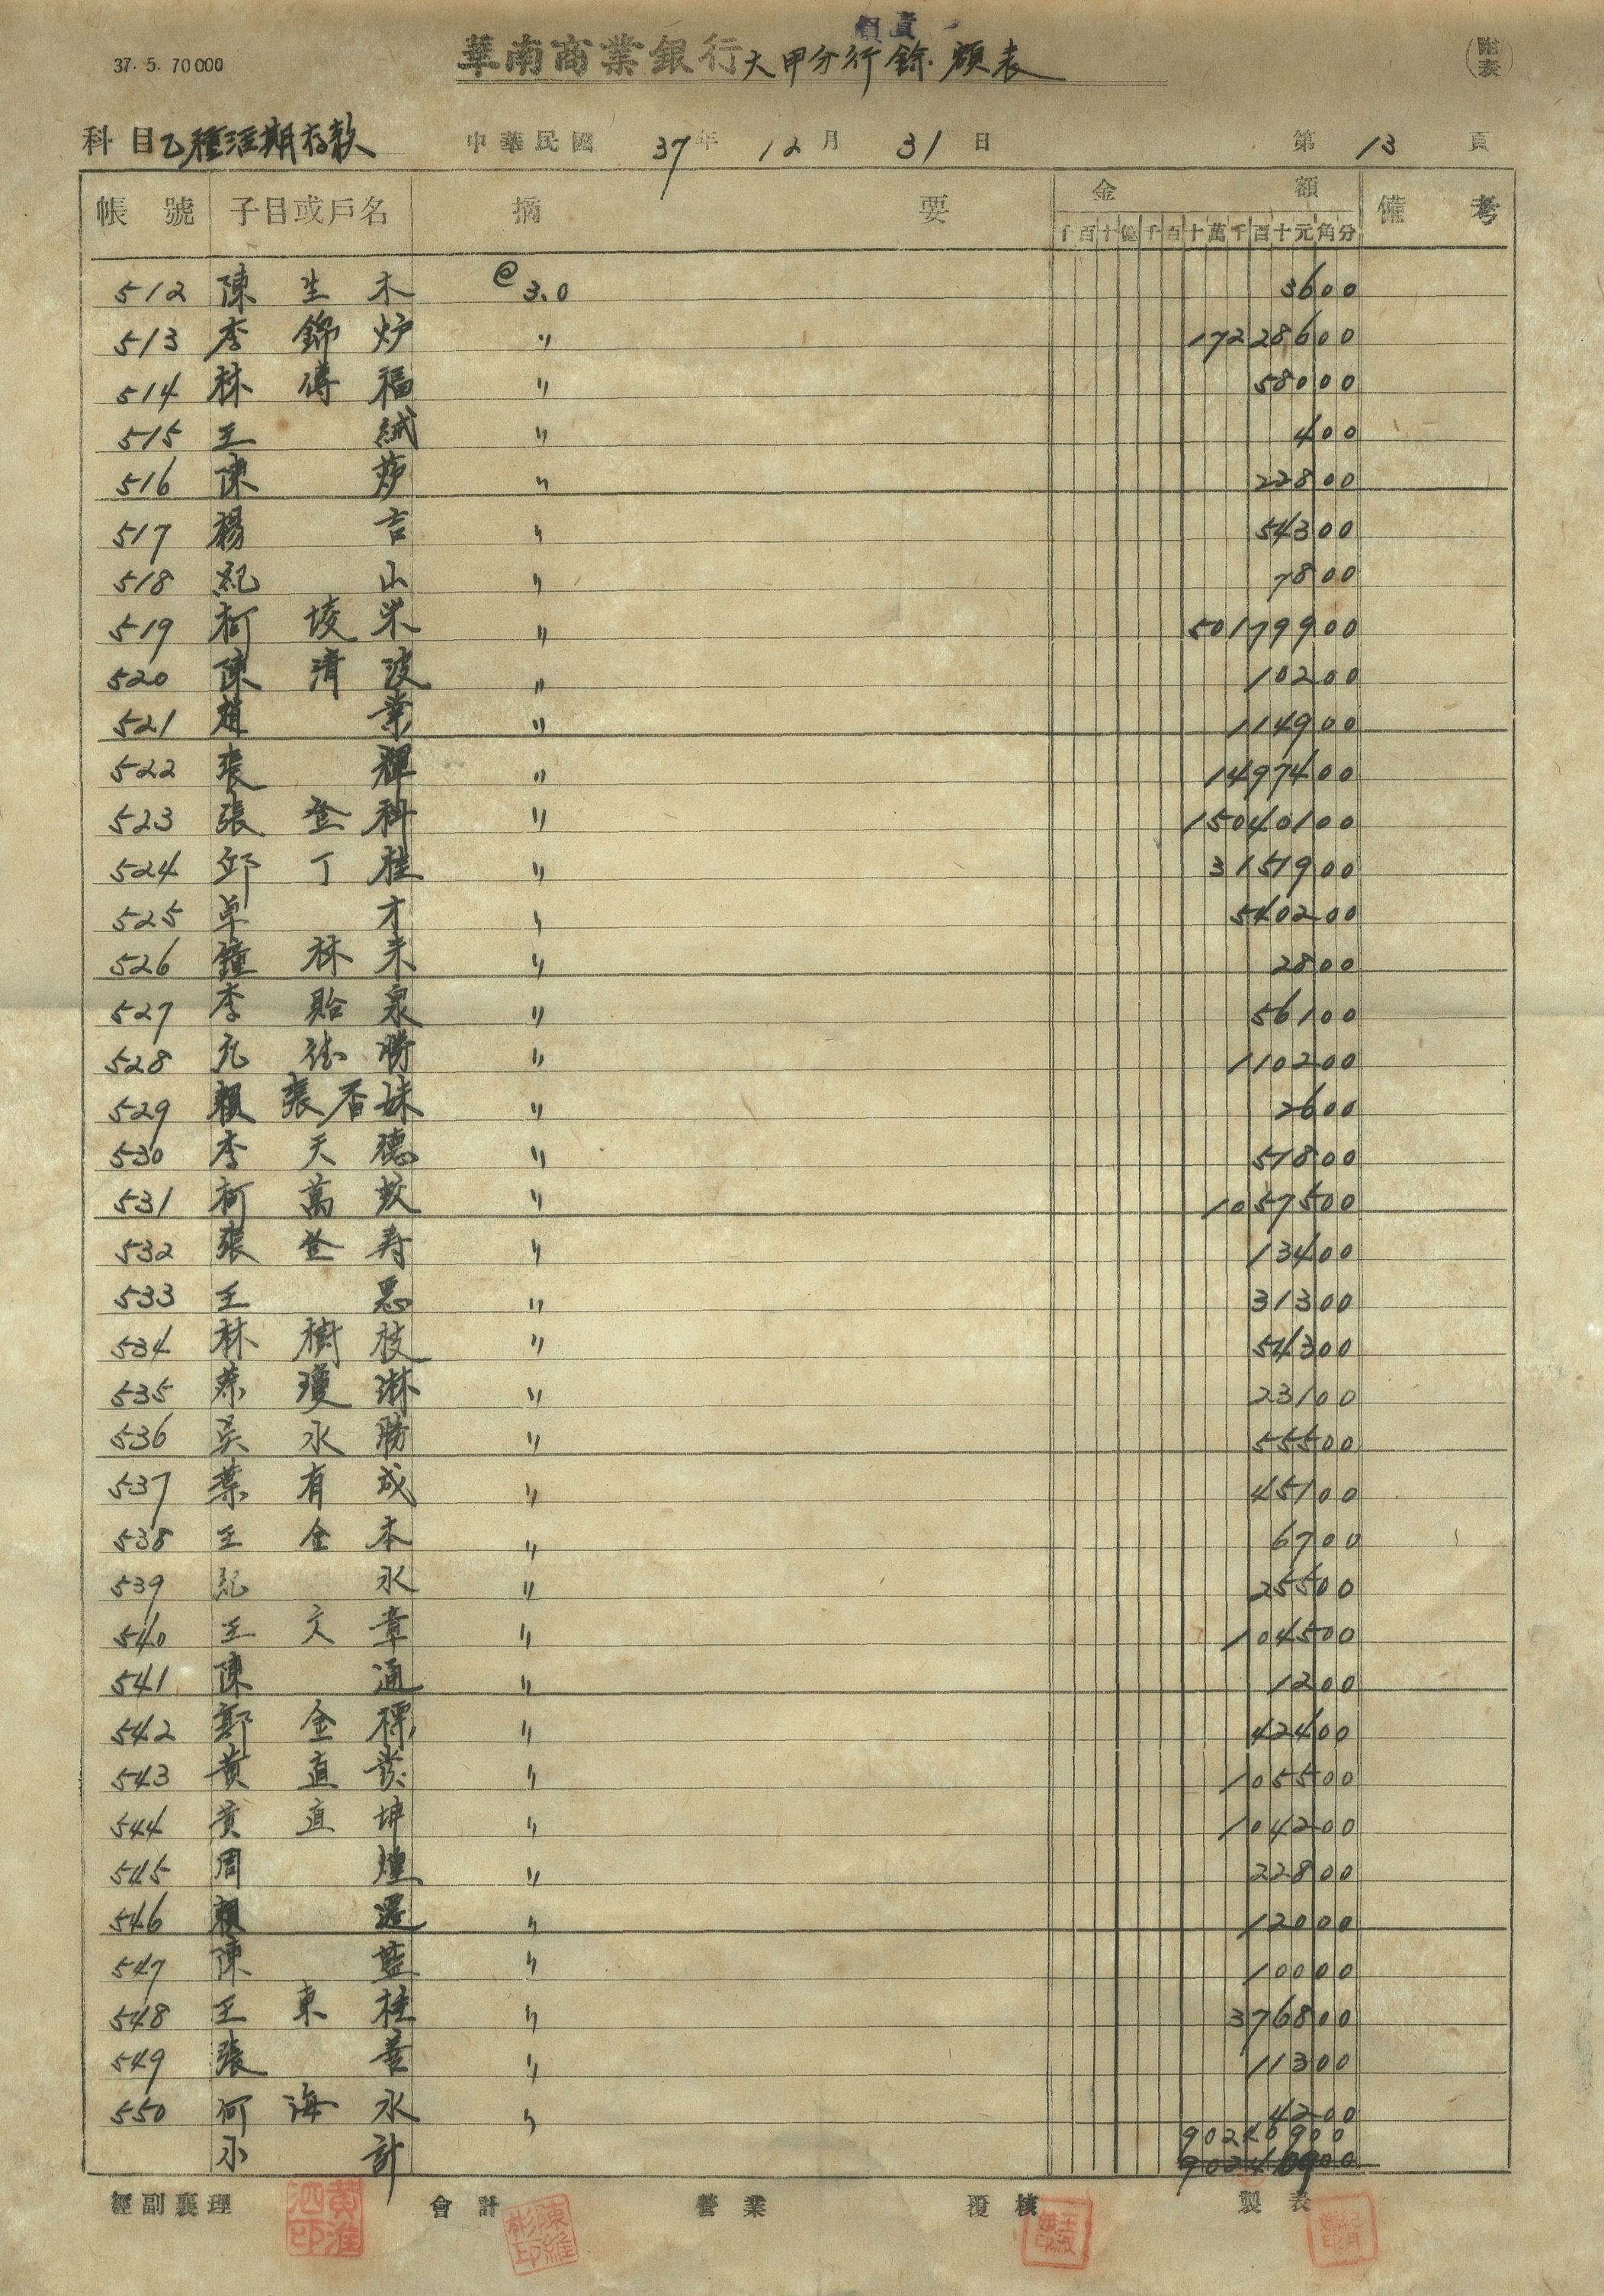 37. 5. 70000
華南商業銀行大甲分行餘額表
附表
科目乙種活期存款 中華民國 37年 12月 31日 第 13 頁
帳號 子目或戶名 摘要 金額 備考
千百十億千百十萬千百十元角分
512 陳生木 @3.0 3600
513 李錦炉 〃 17228600
514 林傳福 〃 58000
515 王絨 〃 400
516 陳 〃 22800
517 楊吉 〃 54300
518 紀山 〃 7800
519 柯埈栄 〃 50179900
520 陳清波 〃 10200
521 趙業 〃 114900
522 張輝 〃 1497400
523 張登科 〃 15040100
524 邱丁桂 〃 3151900
525 卓才 〃 540200
526 鐘林未 〃 2800
527 李貽泉 〃 56100
528 勝 〃 110200
529 賴張香妹 〃 2600
530 李天德 〃 51800
531 柯萬 〃 1057500
532 張登寿 〃 13400
533 王 〃 31300
534 林樹枝 〃 54300
535 蔡瓊淋 〃 23100
536 吳永勝 〃 55500
537 葉有成 〃 45100
538 王金本 〃 6700
539 紀永 〃 25500
540 王文章 〃 104500
541 陳通 〃 1200
542 郭金標 〃 42400
543 黄直發 〃 105500
544 黄直坤 〃 104200
545 周煌 〃 22800
546 賴選 〃 12000
547 陳藍 〃 10000
548 王東桂 〃 376800
549 張 〃 11300
550 何海永 〃 4200
90240900
小計
經副襄理 會計 營業 覆核 製表
黄淮泗印 陳維彬印